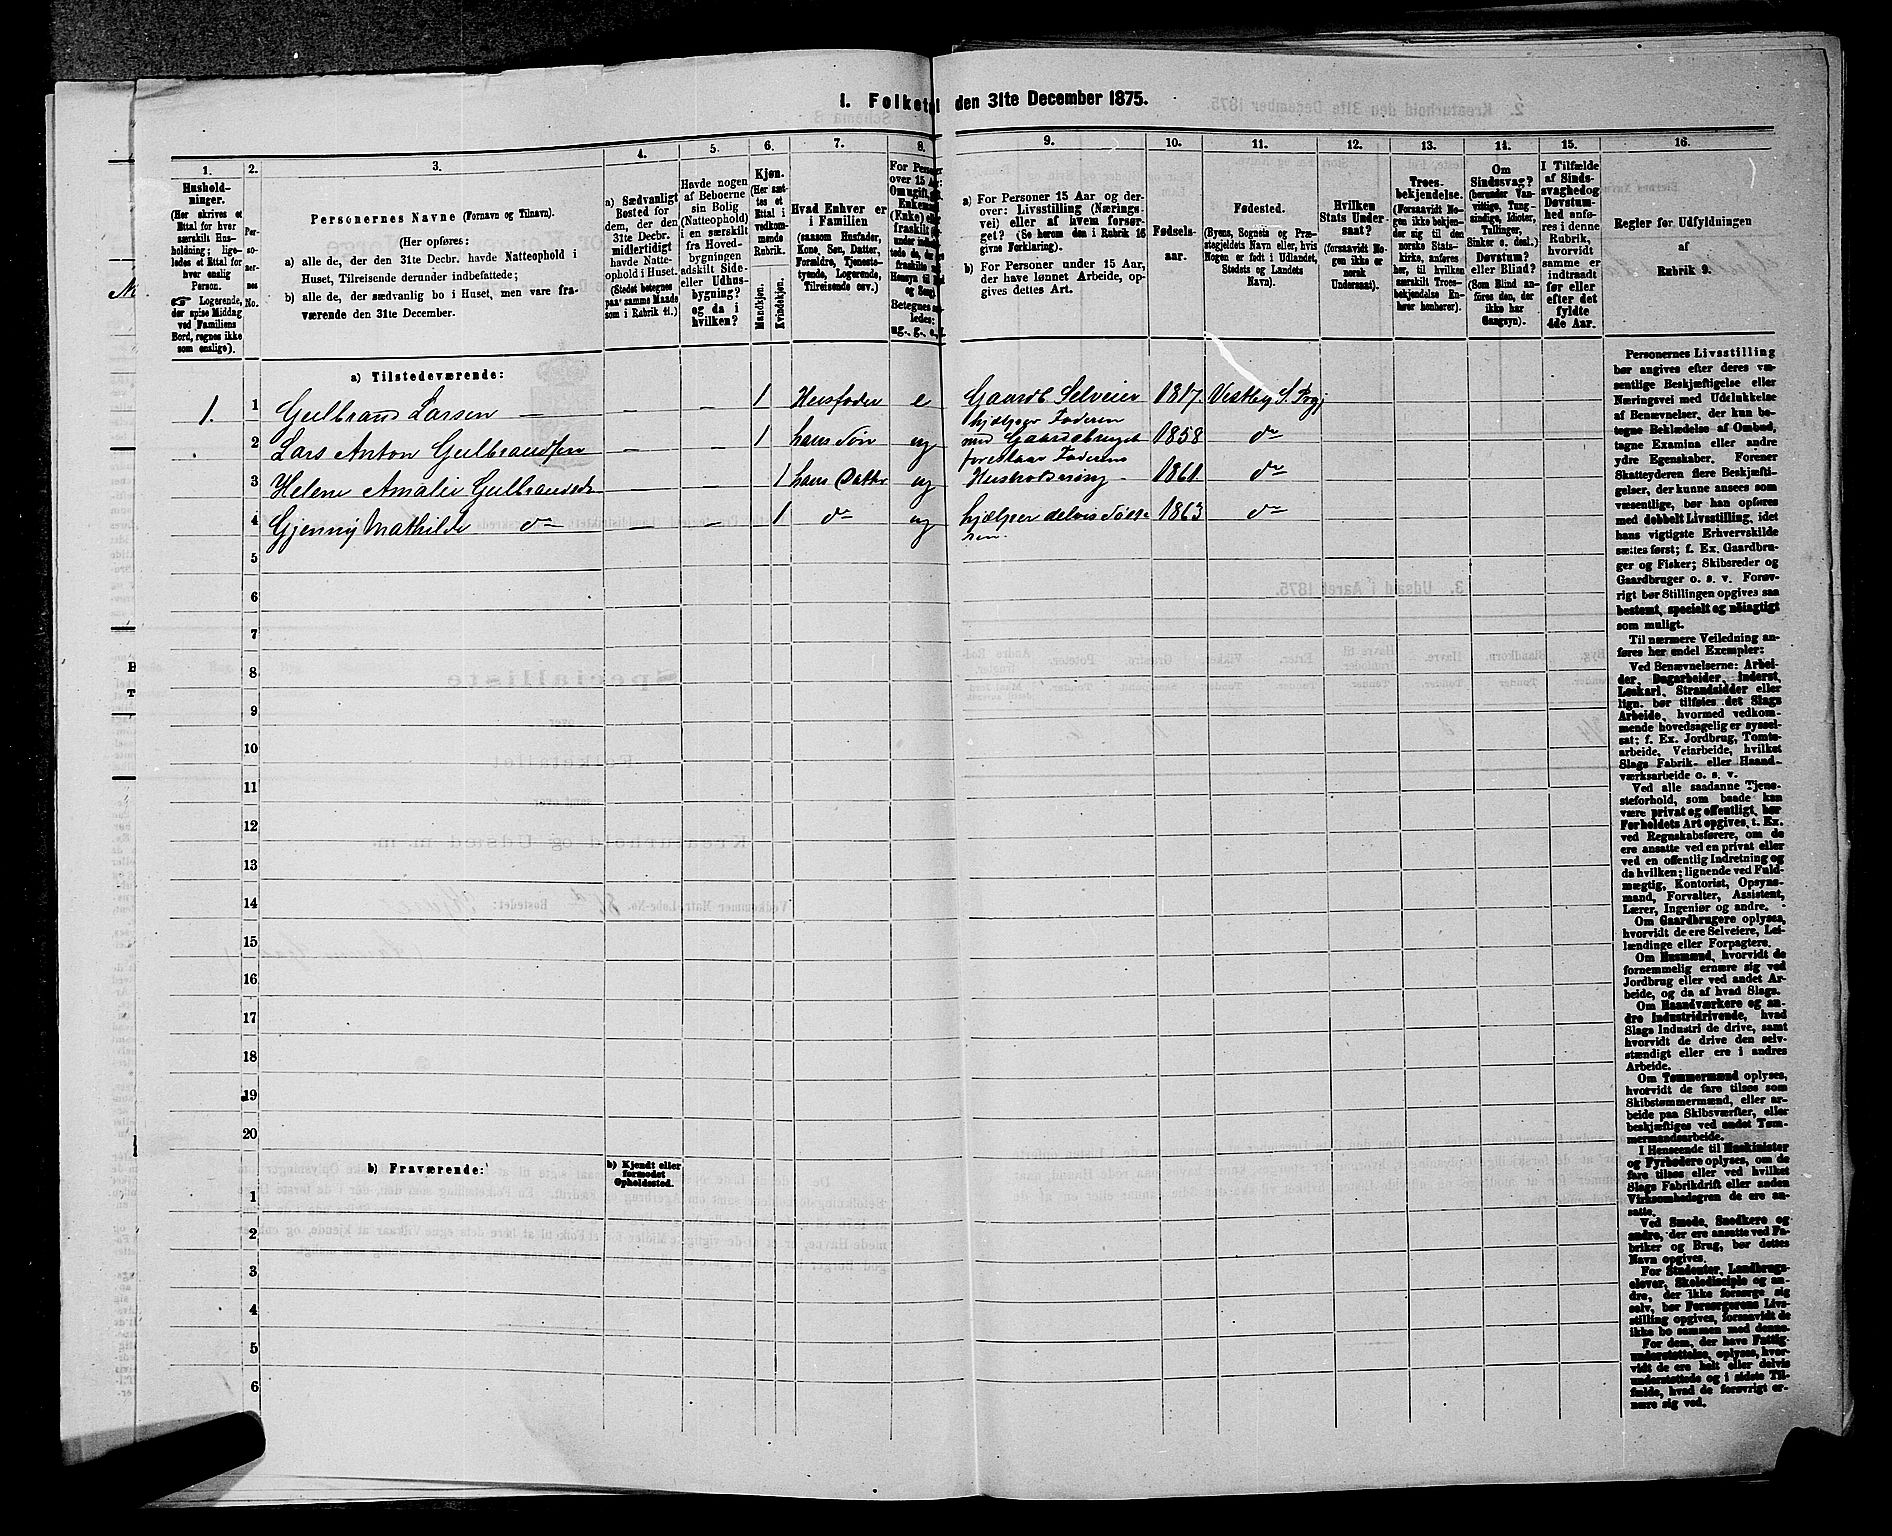 1. Folketal den 31te December 1875.
1.
Hushold-
ninger.
(Her skrives et
Ettal for hver
særskilt Hus-
holdning; lige-
ledes et Ettal for
hver enslig
Person.
☞ Logerende,
der spise Middag
ved Familiens
Bord, regnes ikke
som enslige).
2.
Per-
so-
ner-
nes
No.
3.
Personernes Navne (Fornavn og Tilnavn).
(Her opføres:
a) alle de, der den 31te Decbr. havde Natteophold i
Huset, Tilreisende derunder indbefattede;
b) alle de, der sædvanlig bo i Huset, men vare fra-
værende den 31te December.
4.
a) Sædvanligt
Bosted for
dem, der den
31te Decbr.
midlertidigt
havde Natte-
ophold i Huset.
(Stedet betegnes
paa samme Maade
som i Rubrik 11.)
5.
Havde nogen
af Beboerne
sin Bolig
(Natteophold)
i en særskilt
fra Hoved-
bygningen
adskilt Side-
eller Udhus-
bygning?
og da i
hvilken?
6.
Kjøn.
(Her sæt-
tes et
Ettal i
vedkom-
mende
Rubrik.
Mandkjøn.
Kvindekjøn.
7.
Hvad Enhver er
i Familien
(saasom Husfader,
Kone, Søn, Datter,
Forældre, Tjeneste-
tyende, Logerende,
Tilreisende osv.)
8.
For Personer
over 15 Aar:
9.
a) For Personer 15 Aar og der-
over: Livsstilling (Nærings-
vei) eller af hvem forsør-
get? (Se herom den i Rubrik 16
givne Forklaring).
b) For Personer under 15 Aar,
der have lønnet Arbeide, op-
gives dettes Art.
10.
Fødsels-
aar.
11.
Fødested.
(Byens, Sognets og Præ-
stegjeldets Navn eller, hvis
Nogen er født i Udlandet,
Stedets og Landets
Navn).
12.
Hvilken
Stats Under-
saat?
(forsaavidt No-
gen ikke er
norsk
Undersaat).
13.
Troes-
bekjendelse.
(Forsaavidt No-
gen ikke bekjen-
der sig til den
norske Stats-
kirke, anføres
her, til hvilken
særskilt Troes-
bekjendelse En-
hver henhører).
14.
Om
Sindssvag?
(herunder Van-
vittige, Tung-
sindige, Idioter,
Tullinger,
Sinker o. desl.)
Døvstum?
eller Blind?
(Som Blind an-
føres den, der
ikke har
Gangsyn).
15.
I Tilfælde
af Sinds-
svaghed og
Døvstum-
hed anfø-
res i denne
Rubrik,
hvorvidt
samme er
indtraadt
før eller
efter det
fyldte
4de Aar.
16.
Regler for Udfyldningen
af
Rubrik 9.
a) Tilstedeværende:
1. 1 Gulbrand Larsen — — — 1 Husfader e Gaardb Selveier 1817 Vestby S. Prgj
2 Lars Anton Gulbrandsen — — 1 hans Søn ug hjælper Faderen
med Gaardsbruget 1858 do
3 Helene Amalie Gulbrandsd — — 1 hans Datter ug forestaar Faderens
Husholdning — 1861 do
4 Gjenny Mathilde do — — 1 do ug hjælper delvis Søste
ren 1863 do
5
6
7
8
9
10
11
12
13
14
15
16
17
18
19
20
b) Fraværende:
b) Kjendt eller
formodet
Opholdssted.
1
2
3
4
5
6
Personernes Livsstilling
bør angives efter deres væ-
sentlige Beskjæftigelse eller
Næringsvei med Udelukkelse
af Benævnelser, der kun be-
tegne Beklædelse af Ombud,
tagne Examina eller andre
ydre Egenskaber. Forener
Skatteyderen flere Beskjæfti-
gelser, der kunne ansees som
væsentlige, bør han opføres
med dobbelt Livsstilling, idet
hans vigtigste Erhvervskilde
sættes først; f. Ex. Gaardbru-
ger og Fisker; Skibsreder og
Gaardbruger o. s. v. Forøv-
rigt bør Stillingen opgives saa
bestemt, specielt og nøiagtigt
som muligt.
Til nærmere Veiledning an-
føres her endel Exempler:
Ved Benævnelserne: Arbei-
der, Dagarbeider, Inderst,
Løskarl, Strandsidder eller
lign. bør tilføies det Slags
Arbeide, hvormed vedkom-
mende hovedsagelig er syssel-
sat; f. Ex. Jordbrug, Tomte-
arbeide, Veiarbeide, hvilket
Slags Fabrik- eller Haand-
værksarbeide o. s. v.
Ved alle saadanne Tjene-
steforhold, som baade kan
være privat og offentligt, bør
Forholdets Art opgives, t. Ex.
ved Regnskabsførere, om de
ere ansatte ved en privat eller
ved en offentlig Indretning og
da hvilken; lignende ved Fuld-
mægtig, Kontorist, Opsyns-
mand, Forvalter, Assistent,
Lærer, Ingeniør og andre.
Om Gaardbrugere oplyses,
hvorvidt de ere Selveiere, Lei-
lændinge eller Forpagtere.
Om Husmænd, hvorvidt de
fornemmelig ernære sig ved
Jordbrug eller ved andet Ar-
beide, og da af hvad Slags.
Om Haandværkere og an-
dre Industridrivende, hvad
Slags Industri de drive, samt
hvorvidt de drive den selv-
stændigt eller ere i andres
Arbeide.
Om Tømmermænd oplyses,
hvorvidt de fare tilsøs som
Skibstømmermænd, eller ar-
beide paa Skibsværfter, eller
beskjæftiges ved andet Tøm-
mermandsarbeide.
I Henseende til Maskinister
og Fyrbødere oplyses, om de
fare tilsøs eller ved hvilket
Slags Fabrikdrift eller anden
Virksomhedsgren de ere an-
satte.
Ved Smede, Snedkere og
andre, der ere ansatte ved Fa-
briker og Brug, bør dettes
Navn opgives.
For Studenter, Landbrugs-
elever, Skoledisciple og an-
dre, der ikke forsørge sig
selv, bør Forsørgerens Livs-
stilling opgives, forsaavidt de
ikke bo sammen med denne.
For dem, der have Fattig-
understøttelse, oplyses, hvor-
vidt de ere helt eller delvis
understøttede og i sidste Til-
fælde, hvad de forøvrigt er-
nære sig ved.